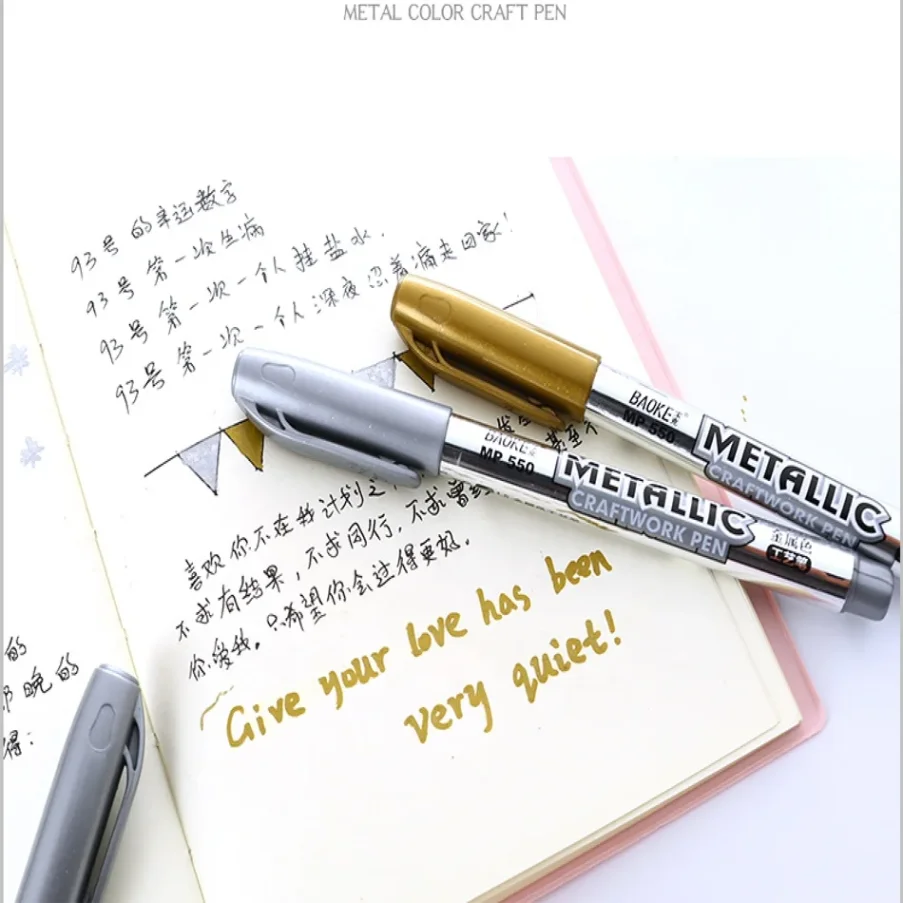 METAL COLOR CRAFT PEN
93号的幸运数字
93号第一次生病
93号第一次一个人挂盐水.
93号第一次一个人深夜忍着痛走回家!
喜欢你不在我计划之
不求有结果,不求同行,不求曾
你爱我。只希望你会过得更好。
Give your love has been
very quiet!
的
晚的
得:
BAOKE
MP-550
METALLIC
CRAFTWORK PEN
BAOKE
MP-550
METALLIC
CRAFTWORK PEN
金属色
工艺笔